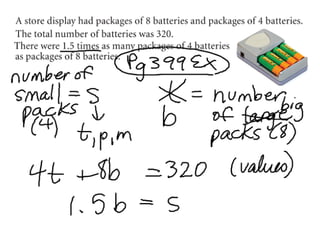 A store display had packages of 8 batteries and packages of 4 batteries.
The total number of batteries was 320.
There were 1.5 times as many packages of 4 batteries
as packages of 8 batteries.
Pg399 Ex
number of
small = s
packs
(4)
t, p, m
= number
b
of big
packs (8)
4t + 8b = 320 (values)
1.5b = s